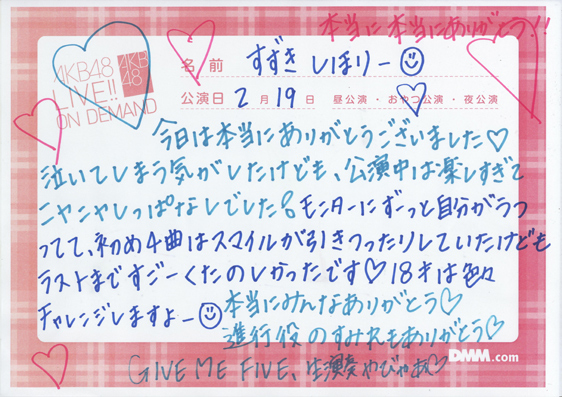 本当に本当にありがとう!!
AKB48
LIVE!!
ON DEMAND
AKB
48
名前 すずき しほりー
公演日 2月19日 昼公演・おやつ公演・夜公演
今日は本当にありがとうございました♡
泣いてしまう気がしたけども、公演中は楽しすぎて
ニヤニヤしっぱなしでした。モニターにずーっと自分がうつ
ってて、初め4曲はスマイルが引きつったりしていたけども
ラストまですごーくたのしかったです♡18才は色々
チャレンジしますよー
本当にみんなありがとう♡
進行役のすみれもありがとう♡
GIVE ME FIVE、生演奏やびゃあ♡
DMM.com